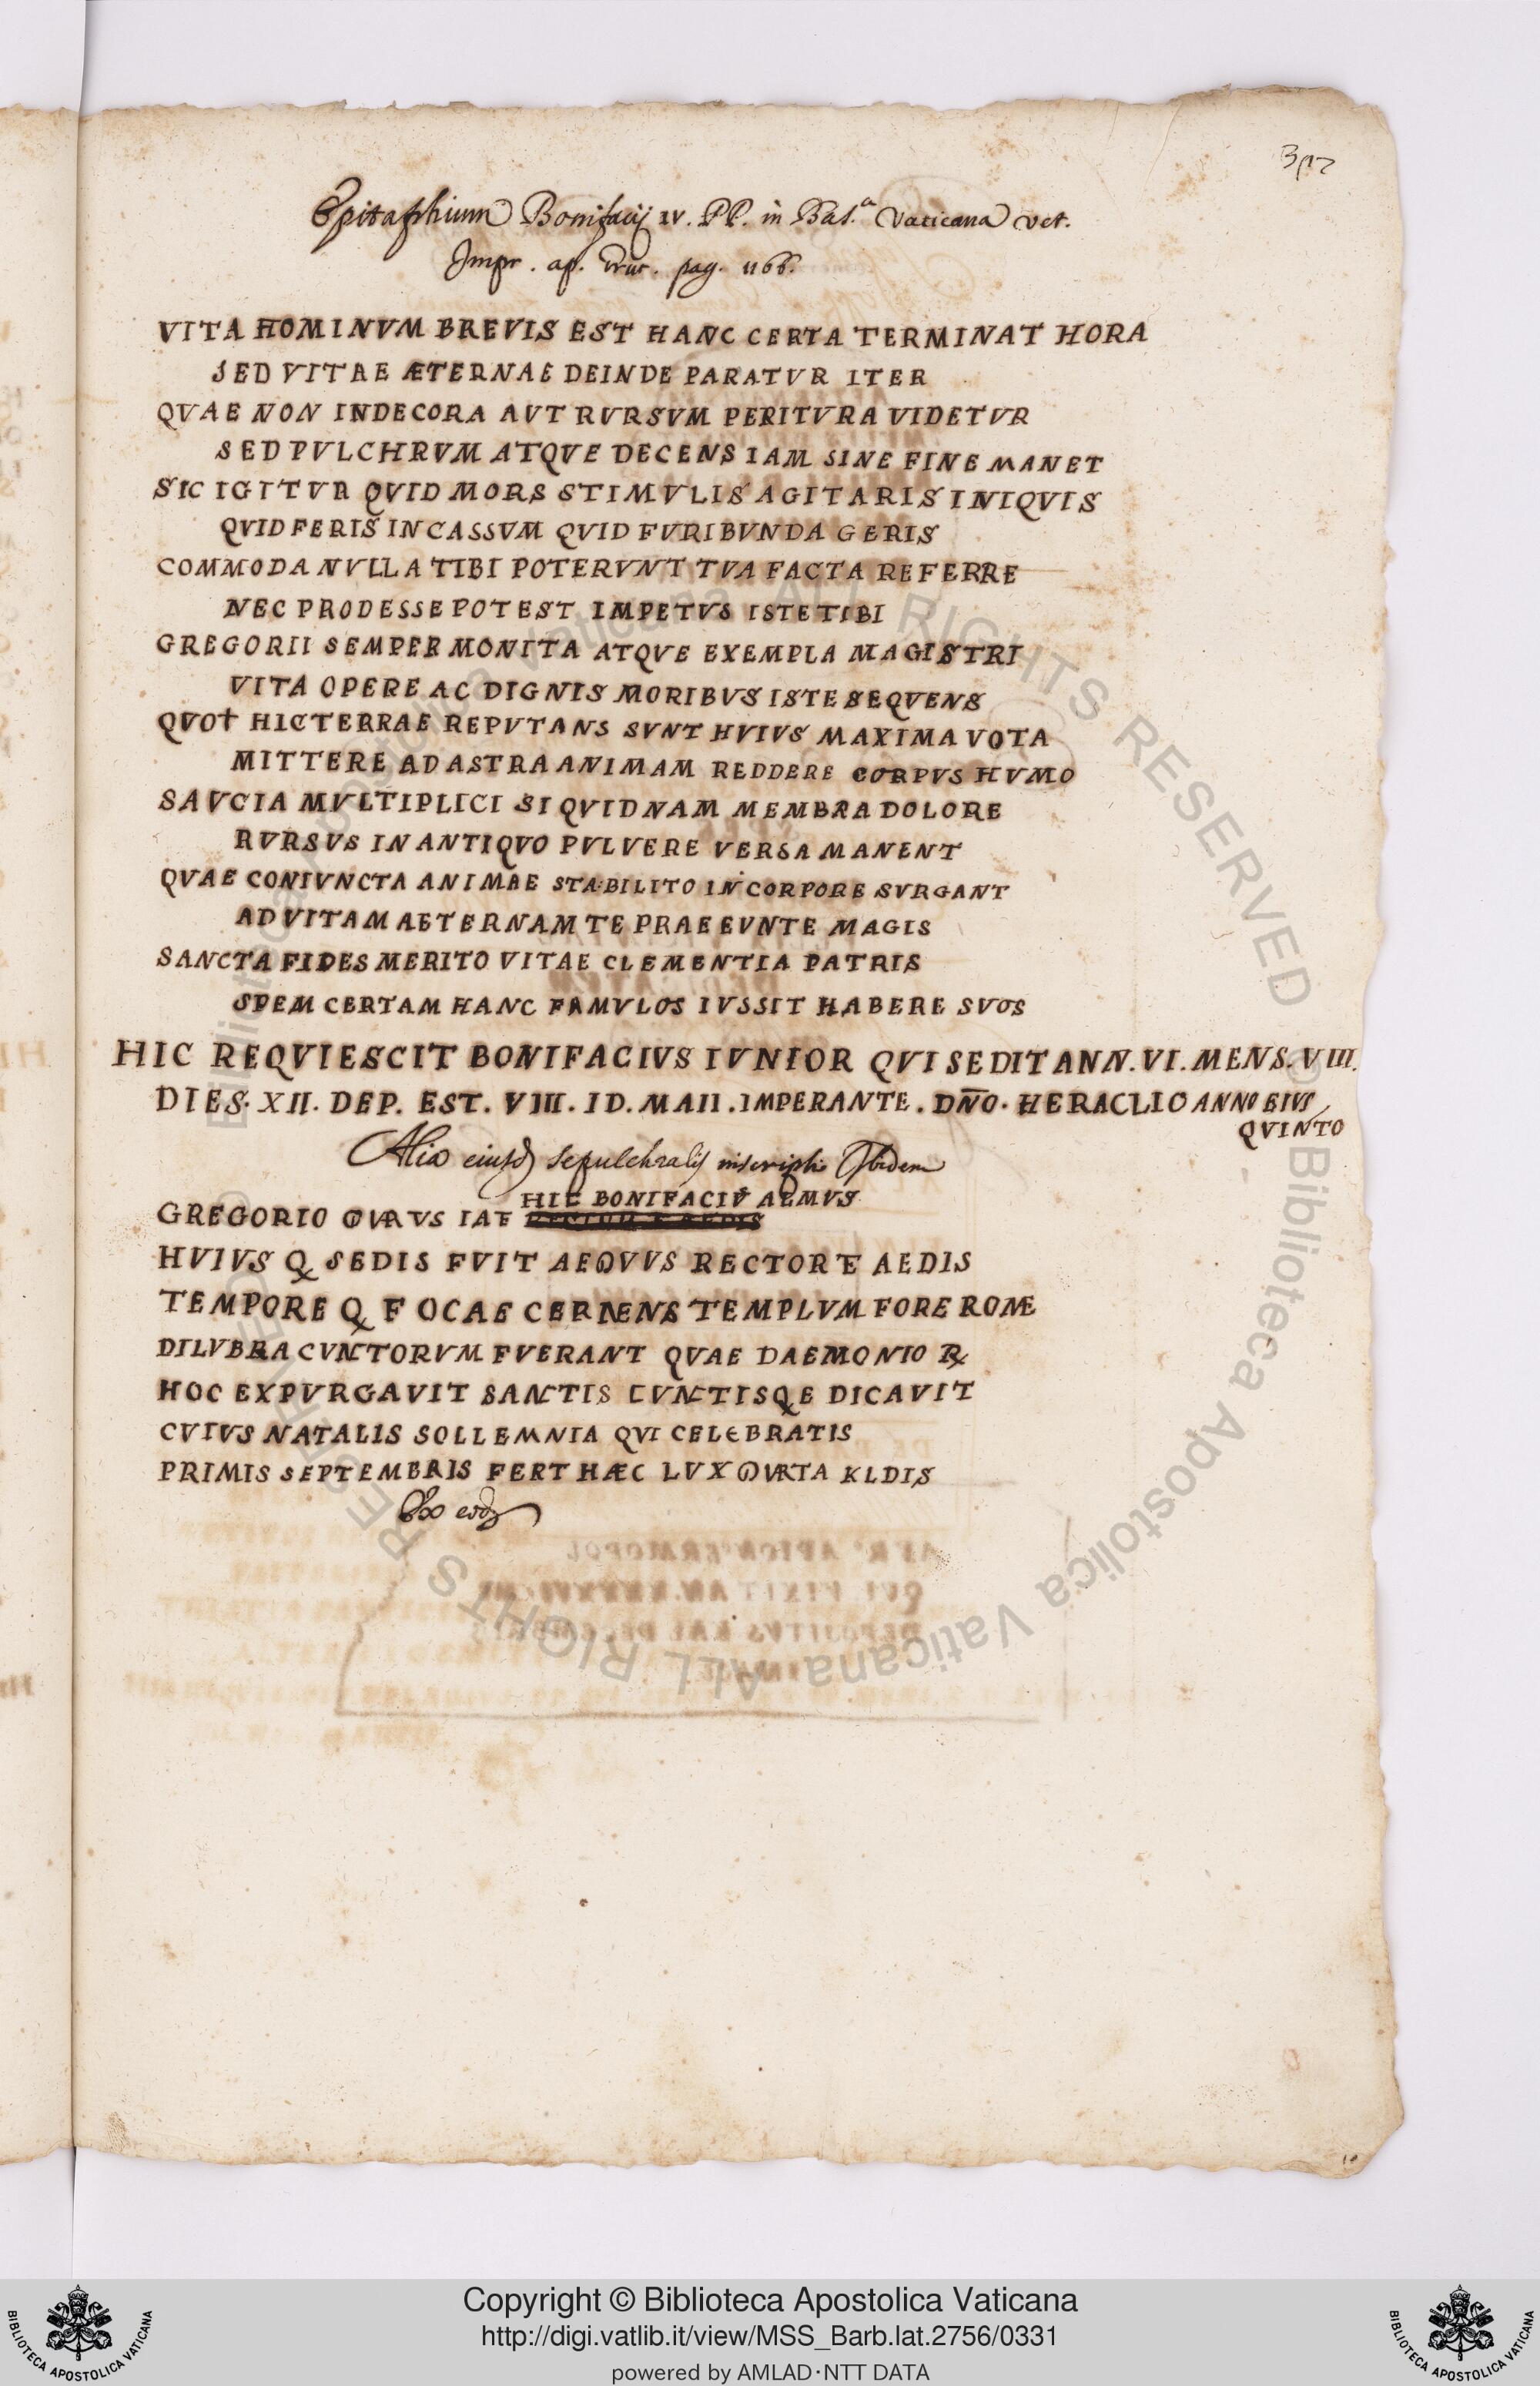 Epitaphium Bonifacij IV. PP. in Bas.a Vaticana vet.
Impr. ap. Grut. pag. 1166.
VITA HOMINVM BREVIS EST HANC CERTA TERMINAT HORA
SED VITAE ÆTERNAE DEINDE PARATVR ITER
QVAE NON INDECORA AVT RVRSVM PERITVRA VIDETVR
SED PVLCHRVM ATQVE DECENS IAM SINE FINE MANET
SIC IGITVR QVID MORS STIMVLIS AGITARIS INIQVIS
QVID FERIS IN CASSVM QVID FVRIBVNDA GERIS
COMMODA NVLLA TIBI POTERVNT TVA FACTA REFERRE
NEC PRODESSE POTEST IMPETVS ISTE TIBI
GREGORII SEMPER MONITA ATQVE EXEMPLA MAGISTRI
VITA OPERE AC DIGNIS MORIBVS ISTE SEQVENS
QVOT HIC TERRAE REPVTANS SVNT HVIVS MAXIMA VOTA
MITTERE AD ASTRA ANIMAM REDDERE CORPVS HVMO
SAVCIA MVLTIPLICI SI QVIDNAM MEMBRA DOLORE
RVRSVS IN ANTIQVO PVLVERE VERSA MANENT
QVAE CONIVNCTA ANIMAE STABILITO IN CORPORE SVRGANT
AD VITAM AETERNAM TE PRAEEVNTE MAGIS
SANCTA FIDES MERITO VITAE CLEMENTIA PATRIS
SPEM CERTAM HANC FAMVLOS IVSSIT HABERE SVOS
HIC REQVIESCIT BONIFACIVS IVNIOR QVI SEDIT ANN. VI. MENS. VIII.
DIES. XII. DEP. EST. VIII. ID. MAII. IMPERANTE. DN̄O. HERACLIO ANNO EIVS
QVINTO
Alia eiusd sepulchralis inscriptio Ibidem
GREGORIO QVARTVS IACET HIC BONIFACIV ALMVS
HVIVS Q SEDIS FVIT AEQVVS RECTOR ET AEDIS
TEMPORE Q FOCAE CERNENS TEMPLVM FORE ROMÆ
DILVBRA CVNCTORVM FVERANT QVAE DAEMONIOR
HOC EXPVRGAVIT SANCTIS CVNCTISQE DICAVIT
CVIVS NATALIS SOLLEMNIA QVI CELEBRATIS
PRIMIS SEPTEMBRIS FERT HÆC LVX QVARTA KLDIS
Ex eod
Copyright © Biblioteca Apostolica Vaticana
http://digi.vatlib.it/view/MSS_Barb.lat.2756/0331
powered by AMLAD·NTT DATA
BIBLIOTECA APOSTOLICA VATICANA
BIBLIOTECA APOSTOLICA VATICANA
© Biblioteca Apostolica Vaticana ALL RIGHTS RESERVED
© Biblioteca Apostolica Vaticana ALL RIGHTS RESERVED